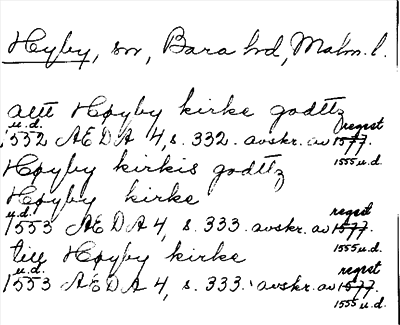 Hyby, sn, Bara hd, Malm. l.
att Høyby kirke godttz
u.d. regest
1532 ÆDA 4, s. 332. avskr. av 1577.
1555 u.d.
Høyby kirkis godttz
Høyby kirke
u.d. regest
1553 ÆDA 4, s. 333. avskr. av 1577.
1555 u.d.
till Høyby kirke
u.d. regest
1553 ÆDA 4, s. 333. avskr. av 1577.
1555 u.d.